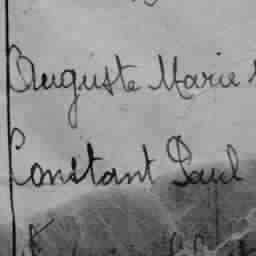 Auguste Marie
Constant Paul